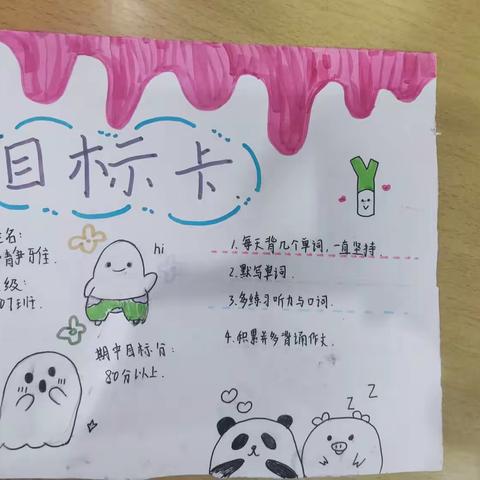 目标卡
姓名:
静雅
hi
级:
07班.
期中目标分:
80分以上.
1.每天背几个单词,一直坚持.
2.默写单词.
3.多练习听力与口词.
4.积累并多背诵作文.
Z Z Z